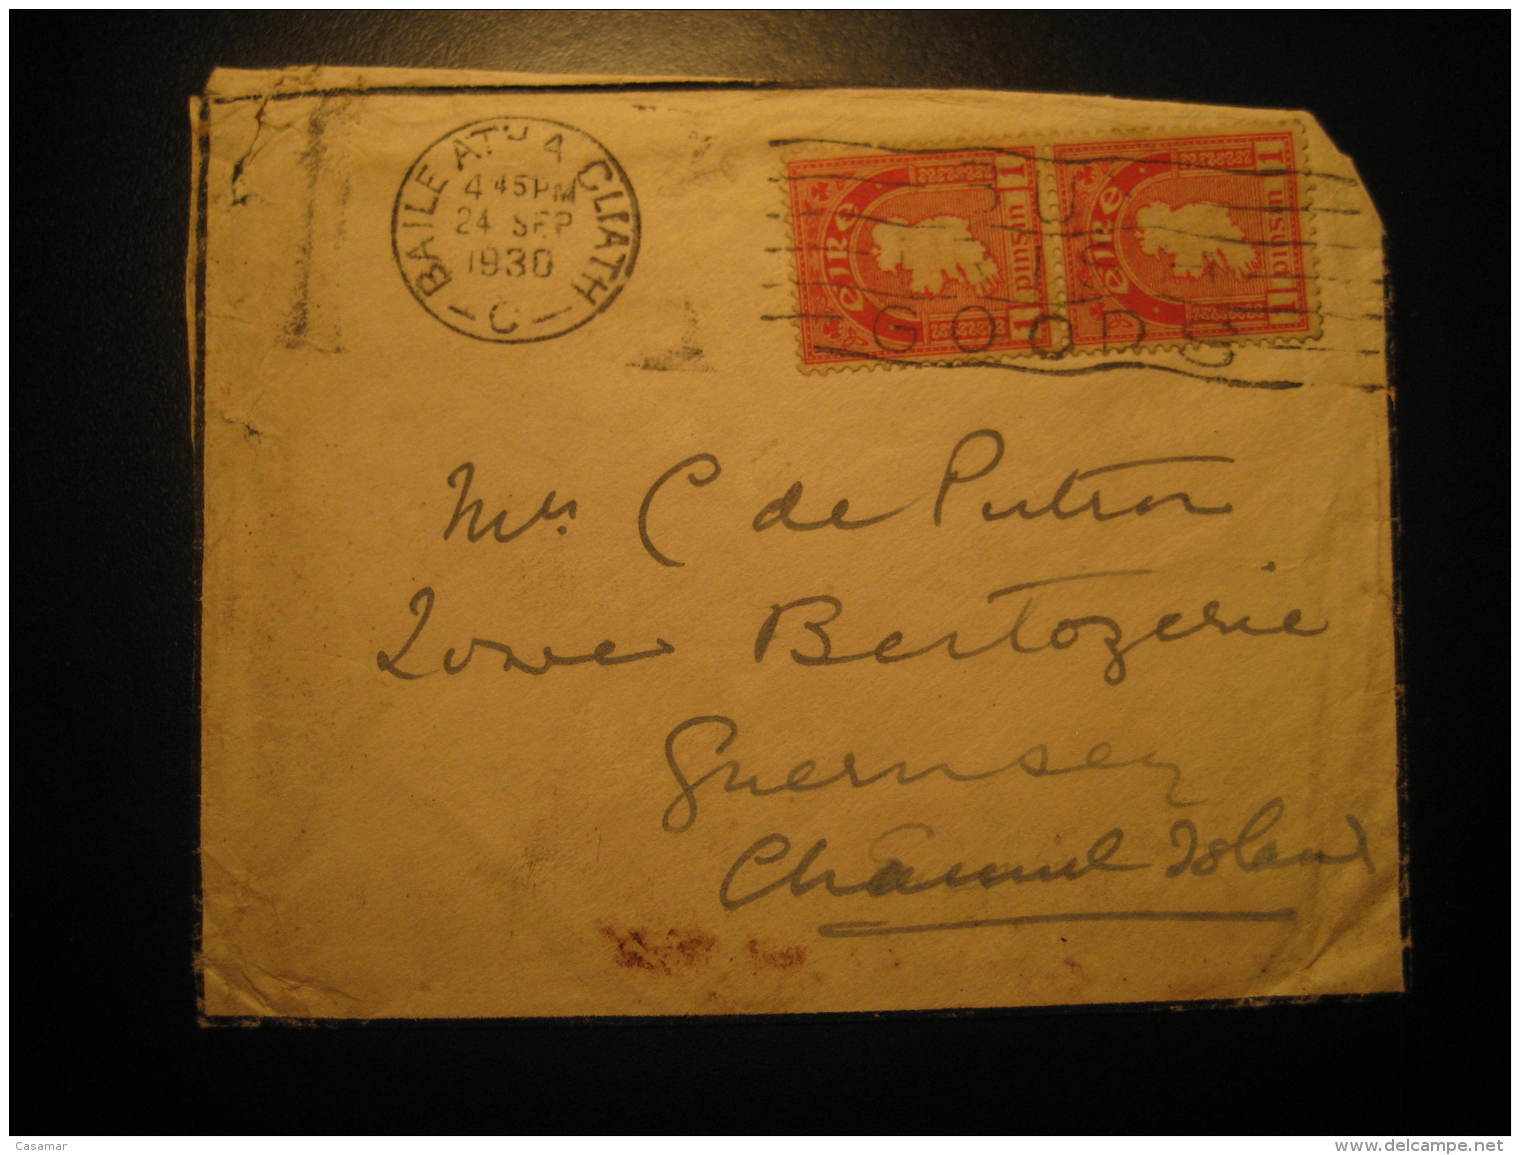 BAILE ÁTH A CLIATH
4 45PM
24 SEP
1930
C
éIRe
1 pinsin 1
éIRe
1 pinsin 1
GOODS
Mrs C de Putron
Lower Bertozerie
Guernsey
Channel Island
Casamar
www.delcampe.net